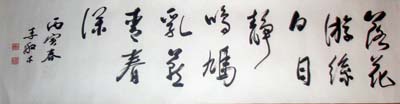 落花
游絲
白日
靜
鳴鳩
乳燕
青春
深
丙寅春